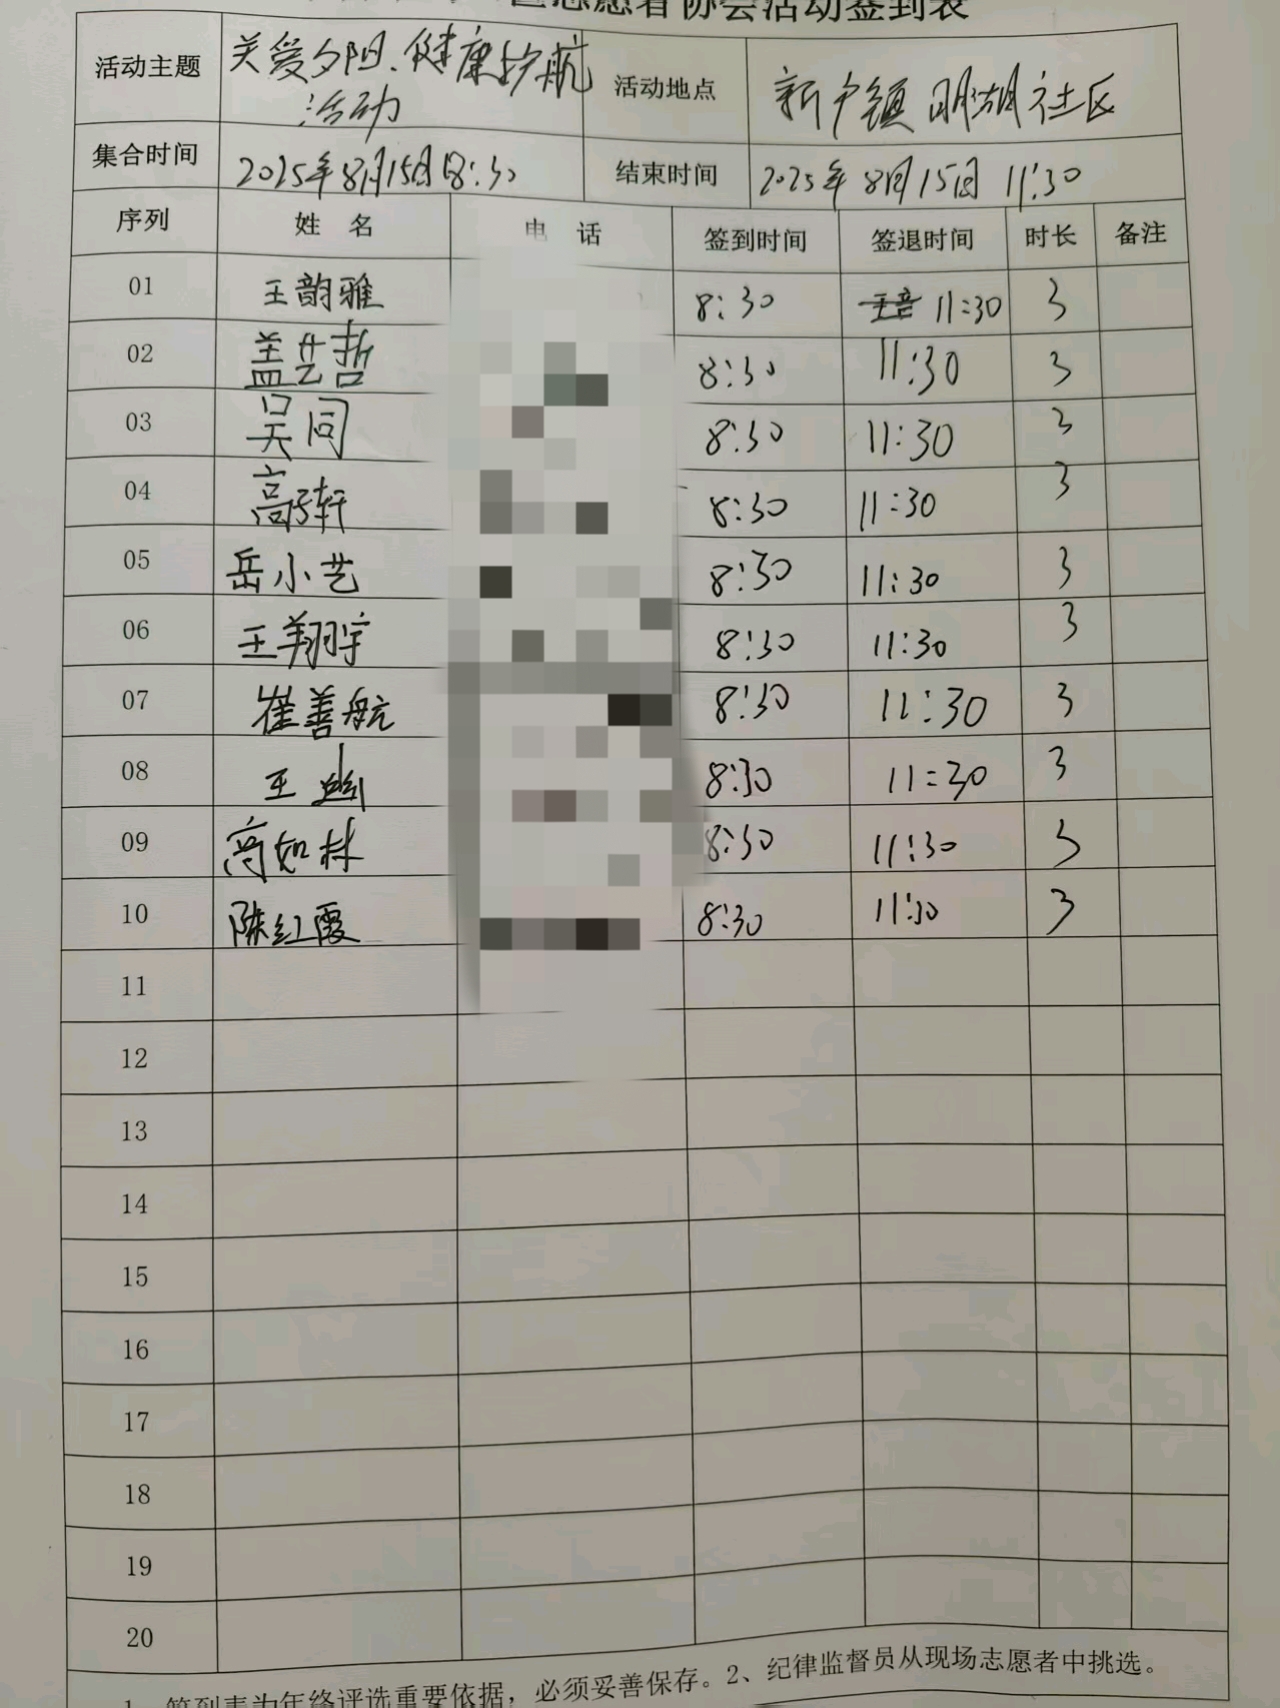 志愿者协会活动签到表
活动主题 关爱夕阳、健康护航 活动 活动地点 新户镇明湖社区
集合时间 2025年8月15日8:30 结束时间 2025年8月15日 11:30
序列 姓 名 电 话 签到时间 签退时间 时长 备注
01 王韵雅 8:30 11:30 3
02 盖艺哲 8:30 11:30 3
03 吴同 8:30 11:30 3
04 高子轩 8:30 11:30 3
05 岳小艺 8:30 11:30 3
06 王翔宇 8:30 11:30 3
07 崔善航 8:30 11:30 3
08 王 8:30 11:30 3
09 高如林 8:30 11:30 3
10 陈红霞 8:30 11:30 3
11
12
13
14
15
16
17
18
19
20
1、签到表为年终评选重要依据，必须妥善保存。2、纪律监督员从现场志愿者中挑选。